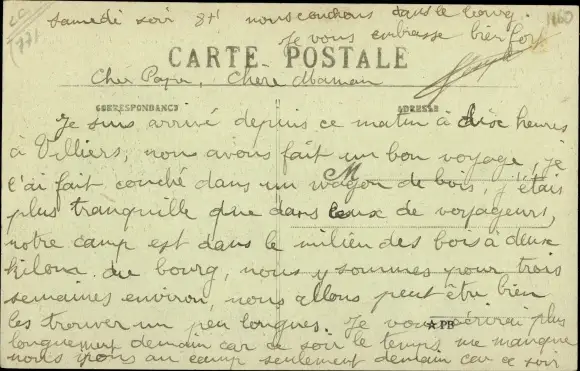 Samedi soir 8h nous couchons dans le bourg.
Je vous embrasse bien fort
1160
CARTE POSTALE
Cher Papa, Chère Maman
CORRESPONDANCE
ADRESSE
Je suis arrivé depuis ce matin à dix heures
à Villiers, nous avons fait un bon voyage, je
l'ai fait couché dans un wagon de bois, j'étais
plus tranquille que dans ceux de voyageurs,
notre camp est dans le milieu des bois à deux
kilom. du bourg, nous y sommes pour trois
semaines environ, nous allons peut être bien
les trouver un peu longues. Je vous écrirai plus
longuement demain car ce soir le temps me manque
nous irons au camp seulement demain car ce soir
M
PB